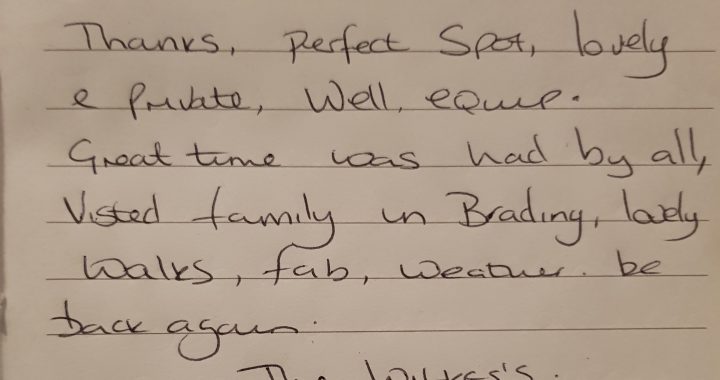 Thanks, perfect Spot, lovely
e private, Well, equip.
Great time was had by all,
Visted family in Brading, lovely
Walks, fab, weather. be
back again.
The